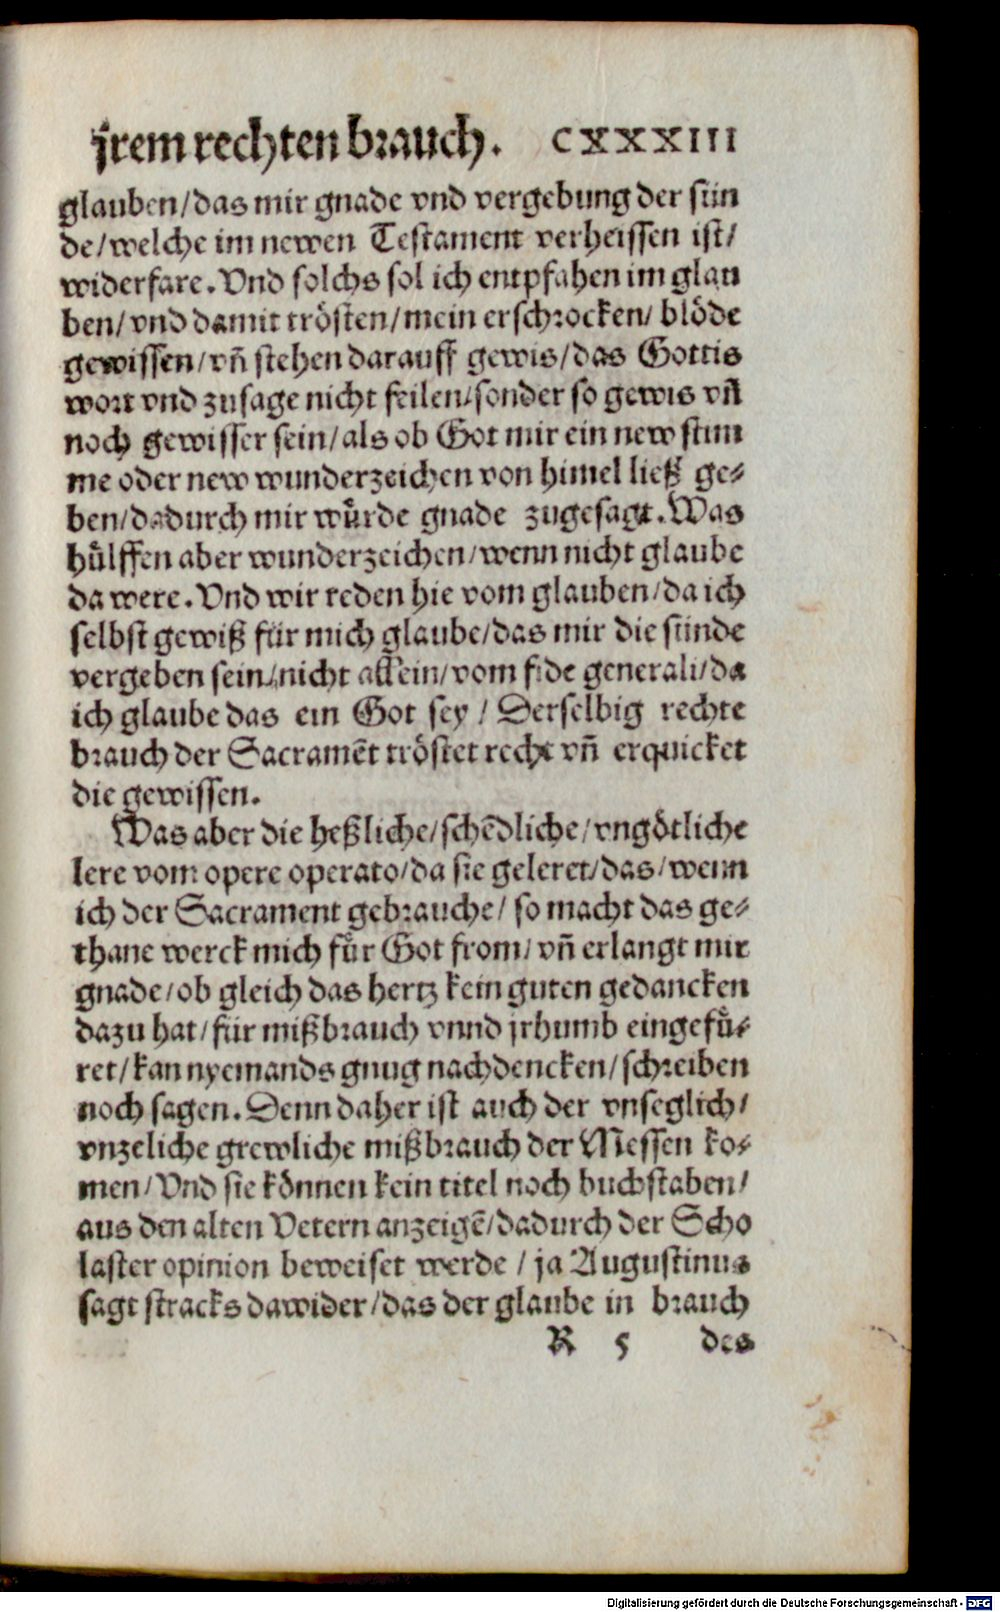 jrem rechten brauch. CXXXIII
glauben/das mir gnade vnd vergebung der sün
de/welche im newen Testament verheissen ist/
widerfare. Vnd solchs sol ich entpfahen im glau
ben/vnd damit trösten/mein erschrocken/ blöde
gewissen/vñ stehen darauff gewis/das Gottis
wort vnd zusage nicht feilen/sonder so gewis vñ
noch gewisser sein/als ob Got mir ein new stim
me oder new wunderzeichen von himel ließ ge⸗
ben/dadurch mir wůrde gnade zugesagt. Was
hůlffen aber wunderzeichen/wenn nicht glaube
da were. Vnd wir reden hie vom glauben/da ich
selbst gewiß für mich glaube/das mir die sünde
vergeben sein/nicht allein/vom fide generali/da
ich glaube das ein Got sey / Derselbig rechte
brauch der Sacramēt tröstet recht vñ erquicket
die gewissen.
Was aber die heßliche/schēdliche/vngötliche
lere vom opere operato/da sie geleret/das/wenn
ich der Sacrament gebrauche/ so macht das ge⸗
thane werck mich fůr Got from/vñ erlangt mir
gnade/ob gleich das hertz kein guten gedancken
dazu hat/für mißbrauch vnnd jrhumb eingefů⸗
ret/kan nyemands gnug nachdencken/schreiben
noch sagen. Denn daher ist auch der vnseglich/
vnzeliche grewliche mißbrauch der Messen ko⸗
men/Vnd sie können kein titel noch buchstaben/
aus den alten Vetern anzeigē/dadurch der Scho
laster opinion beweiset werde / ja Augustinus
sagt stracks dawider/das der glaube in brauch
R 5 des
Digitalisierung gefördert durch die Deutsche Forschungsgemeinschaft - DFG